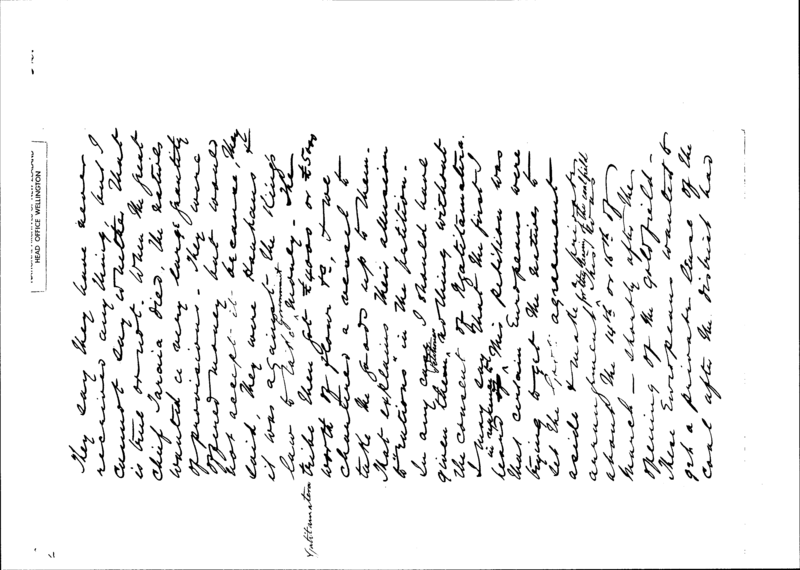 HEAD OFFICE WELLINGTON
They say they have never
received anything but I
cannot say whether that
is true or not. When the great
chief Taraia died, the details
wanted a very large quantity
of provisions. They were
offered money but would
not accept it because, they
said, they were Hauhaus &
it was against the King's
law to take Government money. The
tribe then got £4000 or £5000
worth of flour &c, & we
chartered a vessel to
take the goods up to them.
That explains their allusion
to "rations" in the petition.
In any case I should have
given them nothing without
the consent of Ngatitamatera.
Ngatitamatera
I may say that the first I
heard of this petition was
that certain Europeans were
trying to get the natives to
set the agreement
aside & make a private
arrangement
about the 14th or 15th of
March — shortly after the
opening of the goldfield —
These Europeans wanted to
get a private lease of the
coal after the district had